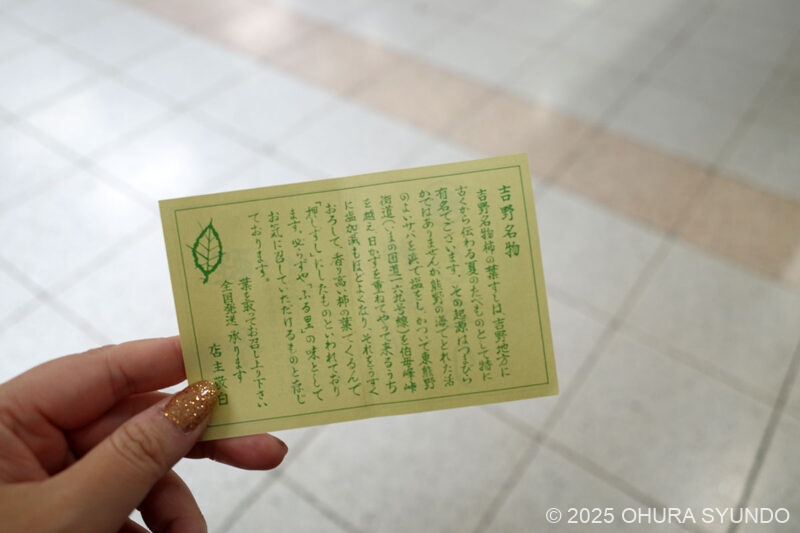 吉野名物
吉野名物柿の葉すしは、吉野地方に
古くから伝わる夏のたべものとして特に
有名でございます。その起源はつまびら
かではありませんが熊野の海でとれた活
のよいサバを浜で塩をし、かついで東熊野
街道(いまの国道一六九号線)を伯母峰峠
を越え、日かずを重ねてやって来るうち
に塩加減もほどよくなり、それをうすく
おろして、香り高い柿の葉でくるんで
「押しずし」にしたものといわれており
ます。必らずや「ふる里」の味として
お気に召していただけるものと存じ
ております。
葉を取ってお召し上り下さい
全国発送承ります
店主敬白
© 2025 OHURA SYUNDO